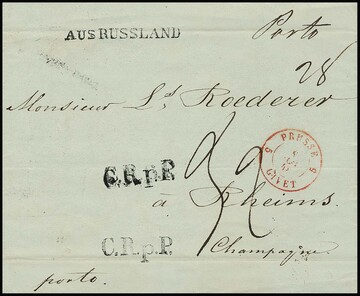 AUS RUSSLAND
Porto
28
Monsieur Ls Roederer
C.R.p.P.
32
5 PRESSE 5
GIVET
à Rheims.
C.R.p.P.
Champagne.
porto.